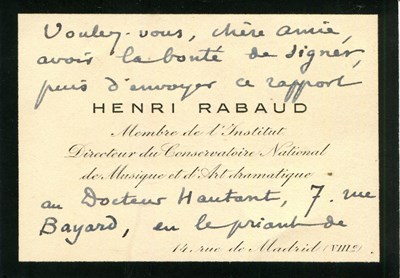 Voulez-vous, chère amie,
avoir la bonté de signer,
puis d'envoyer ce rapport
HENRI RABAUD
Membre de l'Institut
Directeur du Conservatoire National
de Musique et d'Art dramatique
au Docteur Hautant, 7. rue
Bayard, en le priant de
14, rue de Madrid (VIIIe)